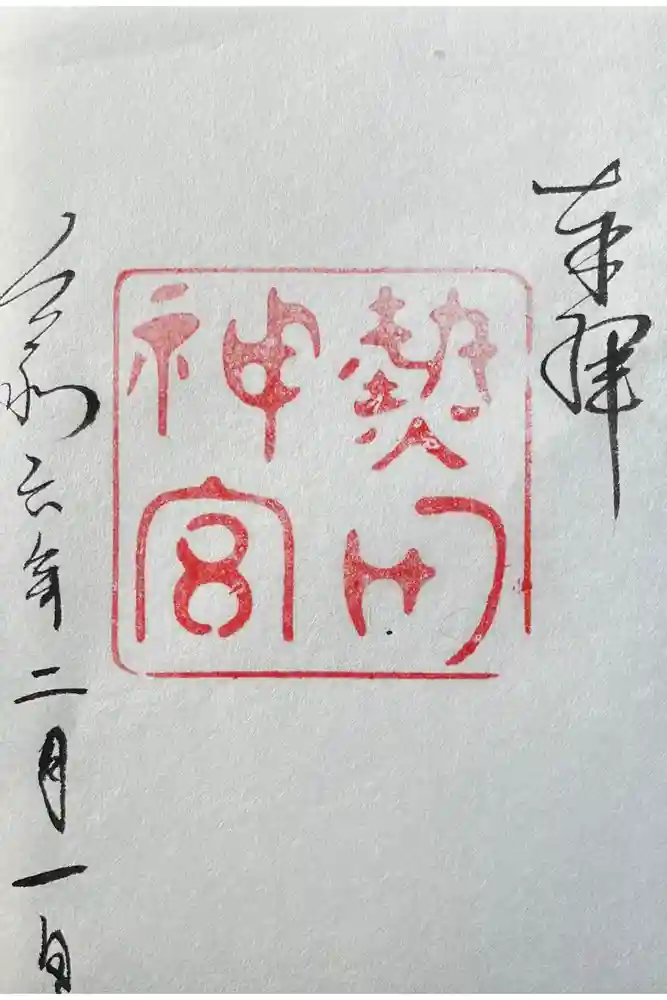 奉拝
熱田
神宮
令和六年二月一日